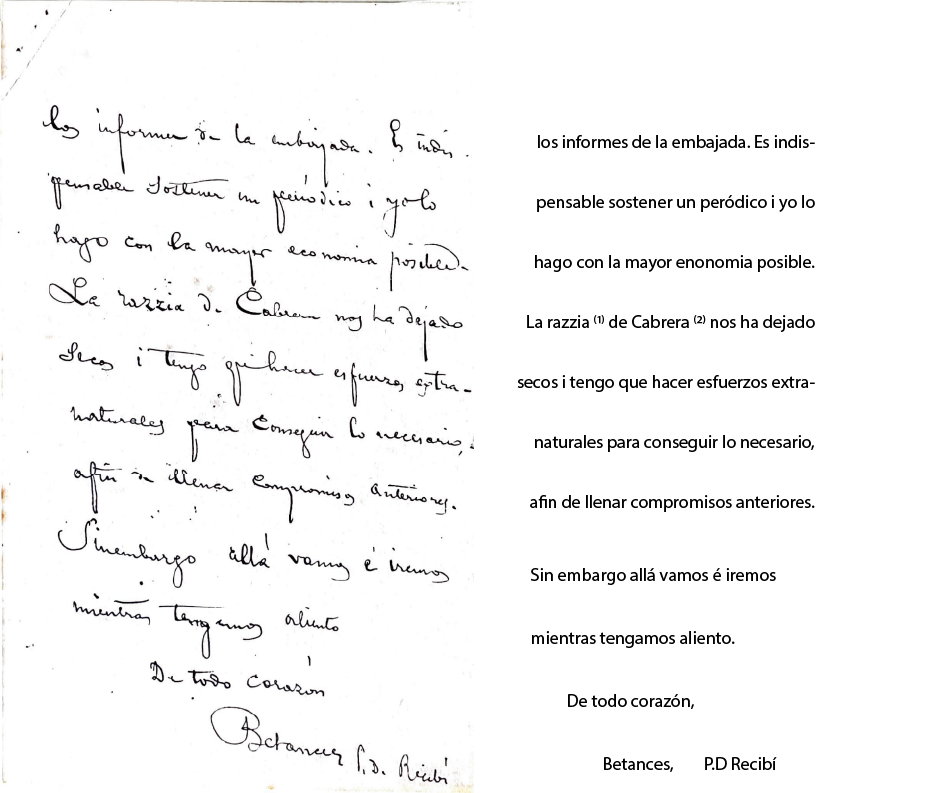 los informes de la embajada. Es indis-
pensable sostener un periódico i yo lo
hago con la mayor economia posible.
La razzia de Cabrera nos ha dejado
secos i tengo que hacer esfuerzos extra-
naturales para conseguir lo necesario,
afin de llenar compromisos anteriores.
Sinembargo allá vamos é iremos
mientras tengamos aliento
De todo corazón
Betances P.D. Recibí
los informes de la embajada. Es indis-
pensable sostener un peródico i yo lo
hago con la mayor enonomia posible.
La razzia (1) de Cabrera (2) nos ha dejado
secos i tengo que hacer esfuerzos extra-
naturales para conseguir lo necesario,
afin de llenar compromisos anteriores.
Sin embargo allá vamos é iremos
mientras tengamos aliento.
De todo corazón,
Betances, P.D Recibí